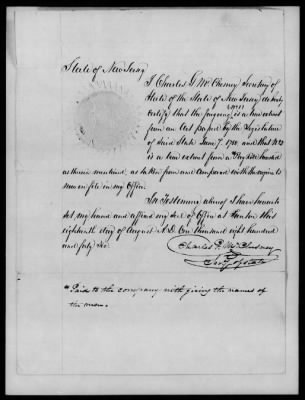 State of New Jersey
I Charles G. McChesney Secretary of
State of the State of New Jersey do hereby
certify that the foregoing is a true extract
from an Act passed by the Legislature
of said State June 7, and that No 3
is a true extract from a
as therein mentioned, as taken from and compared with the originals
now on file in my Office.
In Testimony whereof I have hereunto
set my hand and affixed my seal of Office at Trenton this
eighteenth day of August A.D. One thousand eight hundred
and fifty
Charles G. McChesney
Secy of State
* Paid to the company with giving the names of
the men.